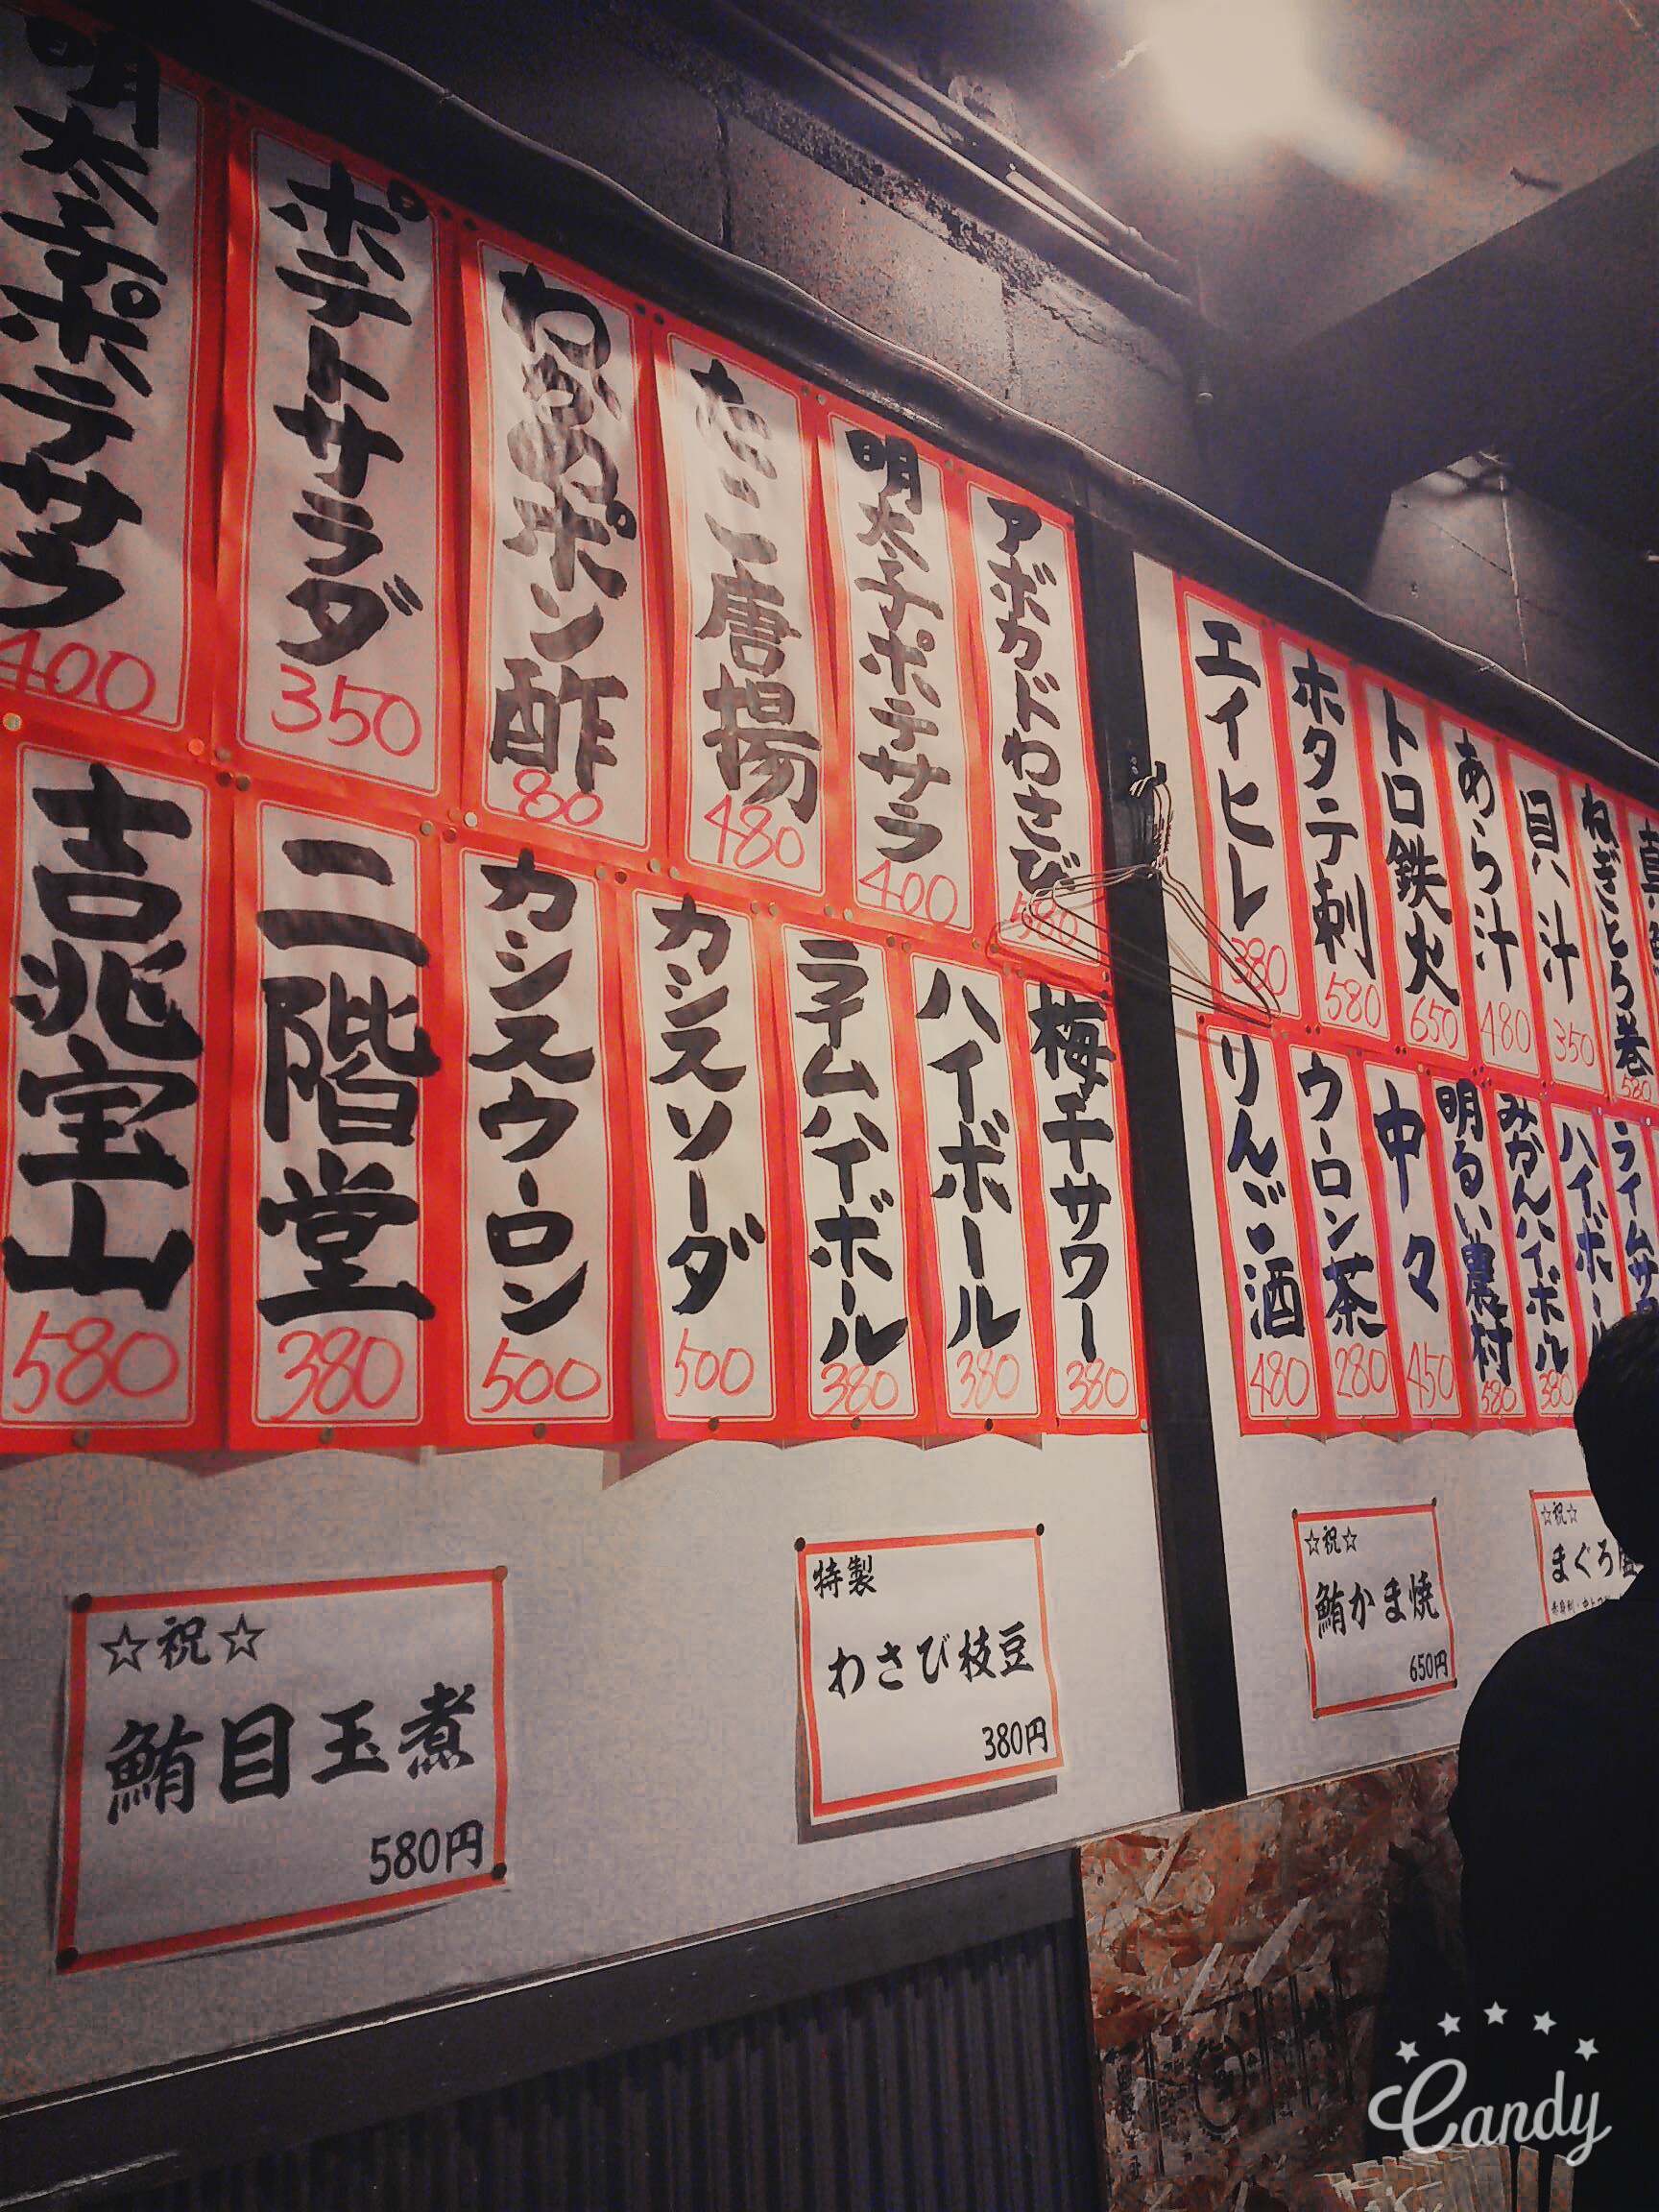 明太子ポテサラ
400
ポテトサラダ
350
わかめポン酢
80
たこ唐揚
480
明太子ポテサラ
400
アボカドわさび
580
エイヒレ
380
ホタテ刺
580
トロ鉄火
650
あら汁
480
貝汁
350
ねぎとろ巻
580
吉兆宝山
580
二階堂
380
カシスウーロン
500
カシスソーダ
500
ライムハイボール
380
ハイボール
380
梅干サワー
380
りんご酒
480
ウーロン茶
280
中々
450
明るい農村
580
みかんハイボール
380
ハイボール
ライムサワ
☆祝☆
鮪目玉煮
580円
特製
わさび枝豆
380円
☆祝☆
鮪かま焼
650円
☆祝☆
まぐろ
Candy